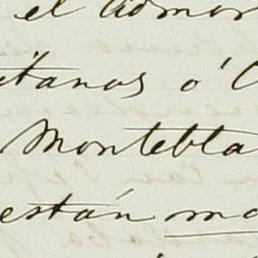 el Admor
itanos ó C
Montebla
están ma